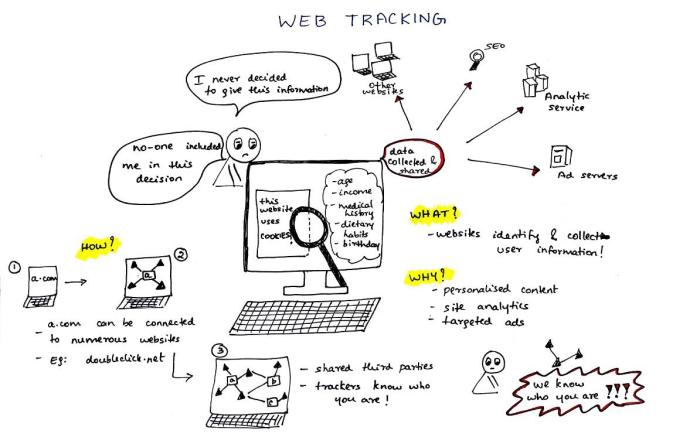 WEB TRACKING
I never decided
to give this information
no-one included
me in this
decision
Other
websites
SEO
Analytic
service
Ad servers
data
collected &
shared
this
website
uses
COOKIES!
- age
- income
- medical
history
- dietary
habits
- birthday
WHAT?
- websites identify & collect
user information!
WHY?
- personalised content
- site analytics
- targeted ads
HOW?
1
a.com
2
a
- a.com can be connected
to numerous websites
- Eg: doubleclick.net
3
a
b
c
- shared third parties
- trackers know who
you are!
we know
who you are ???